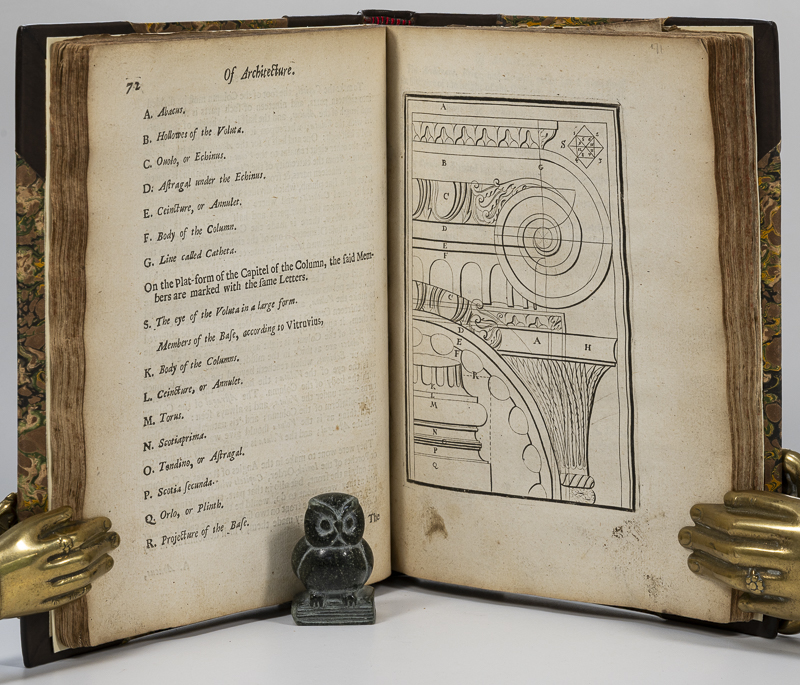 72
Of Architecture.
A. Abacus.
B. Hollowes of the Voluta.
C. Ouolo, or Echinus.
D. Aſtragal under the Echinus.
E. Ceincture, or Annulet.
F. Body of the Column.
G. Line called Catheta.
On the Plat-form of the Capitel of the Column, the ſaid Mem-
bers are marked with the ſame Letters.
S. The eye of the Voluta in a large form.
Members of the Baſe, according to Vitruvius,
K. Body of the Columns.
L. Ceincture, or Annulet.
M. Torus.
N. Scotia prima.
O. Tondino, or Aſtragal.
P. Scotia ſecunda.
Q. Orlo, or Plinth.
R. Projecture of the Baſe.
The
A
B
C
D
E
F
G
S
2
3
C
D
E
F
A
H
K
K
L
M
N
P
Q